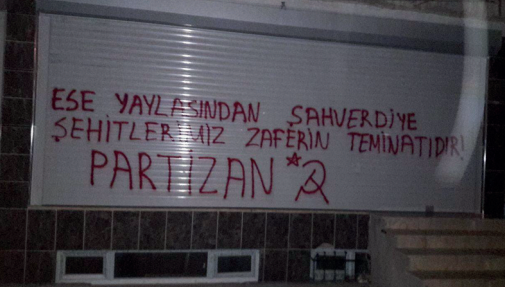 ESE YAYLASINDAN ŞAHVERDİYE
ŞEHİTLERİMİZ ZAFERİN TEMİNATIDIR!
PARTİZAN